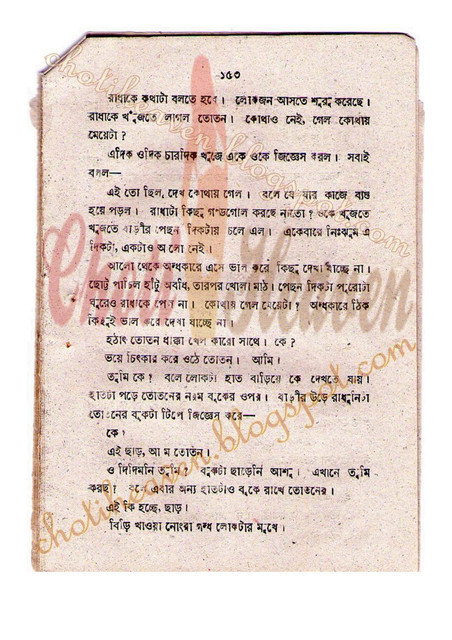 ১৫৩
রাধাকে কথাটা বলতে হবে। লোকজন আসতে শুরু করেছে।
রাধাকে খুঁজতে লাগল তোতন। কোথাও নেই, গেল কোথায়
মেয়েটা?
এদিক ওদিক চারদিক খুঁজে একে ওকে জিজ্ঞেস করল। সবাই
বলল—
এই তো ছিল, দেখ কোথায় গেল। বলে যে যার কাজে ব্যস্ত
হয়ে পড়ল। রাধাটা কিছু গণ্ডগোল করছে নাতো? ওকে খুঁজতে
খুঁজতে বাড়ীর পেছন দিকটার চলে এল। একেবারে নিঃঝুম এ
দিকটা, একটাও আলো নেই।
আলো থেকে অন্ধকারে এসে ভাল করে কিছু দেখা যাচ্ছে না।
ছোট্ট পাঁচিল হাঁটু অবধি, তারপর খোলা মাঠ। পেছন দিকটা পুরোটা
ঘুরেও রাধাকে পেল না। কোথায় গেল মেয়েটা? অন্ধকারে ঠিক
কিছুই ভাল করে দেখা যাচ্ছে না।
হঠাৎ তোতন ধাক্কা খেল কারো সাথে। কে?
ভয়ে চিৎকার করে ওঠে তোতন। আমি।
তুমি কে? বলে লোকটা হাত বাড়িয়ে কে দেখতে যায়।
হাতটা পড়ে তোতনের নরম বুকের ওপর। বাড়ীর উড়ে রাধুনিটা
তোতনের বুকটা টিপে জিজ্ঞেস করে—
কে?
এই ছাড়, আমি তোতন।
ও দিদিমনি তুমি? বুকটা ছাড়েনি আশু। এখানে তুমি
করছ? বলে এবার অন্য হাতটাও বুকে রাখে তোতনের।
এই কি হচ্ছে, ছাড়।
বিড়ি খাওয়া নোংরা গন্ধ লোকটার মুখে।
chotiheaven.blogspot.com
chotiheaven.blogspot.com
Choti Heaven